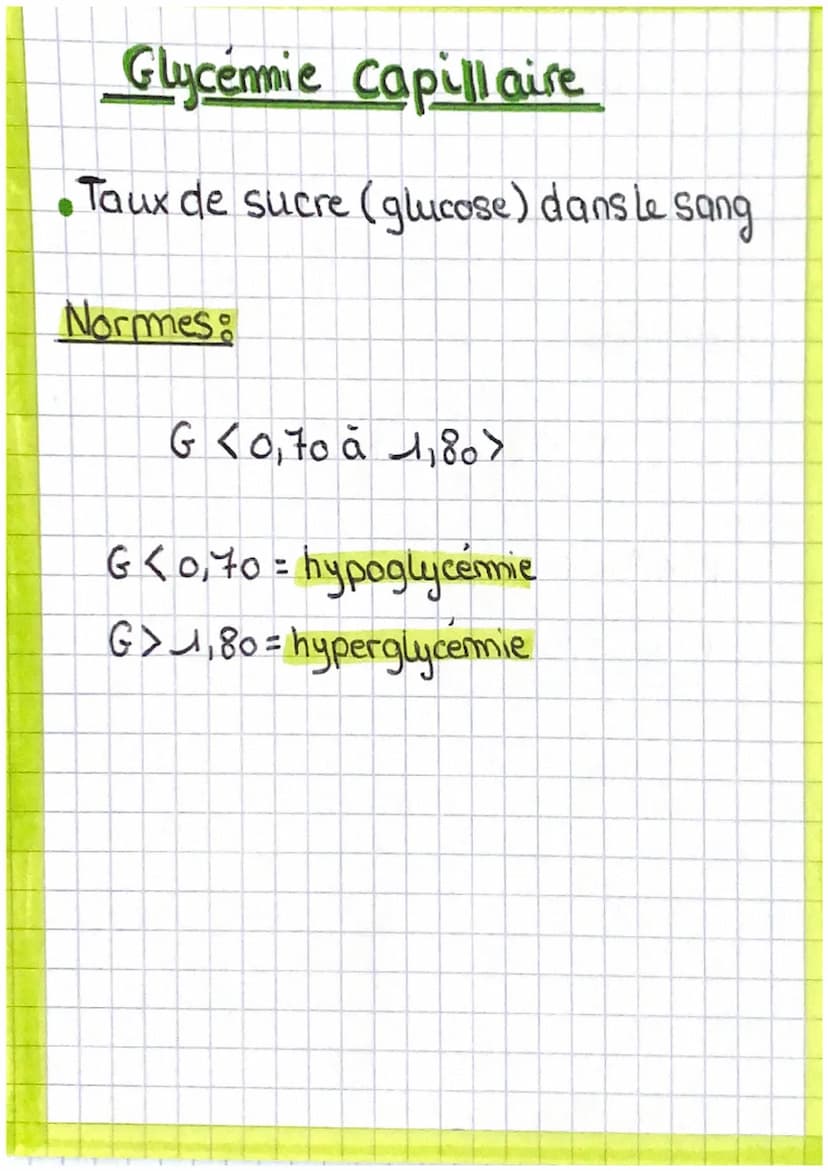 Glycémie capillaire
• Taux de sucre (glucose) dans le sang
Normes:
G <0,70 à 1,80>
G < 0,70 = hypoglycémie
G > 1,80 = hyperglycémie